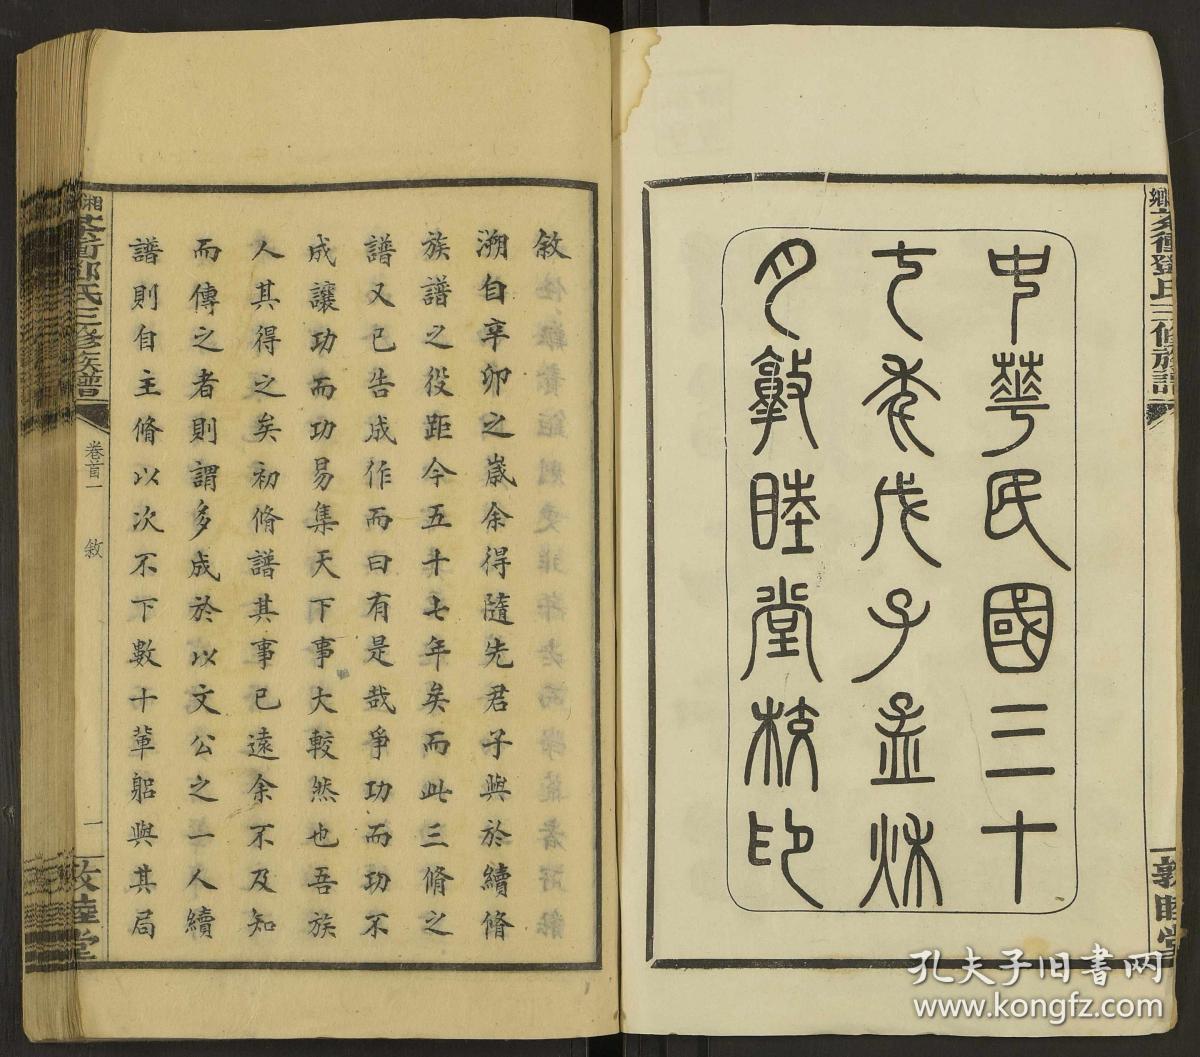 中華民國三十
七年戊子孟秌
月敦睦堂校印
鄉茶衝鄧氏三修族譜
敦睦堂
敘
溯自辛卯之歲余得隨先君子與於續脩
族譜之役距今五十七年矣而此三脩之
譜又已告成作而曰有是哉爭功而功不
成讓功而功易集天下事大較然也吾族
人其得之矣初脩譜其事已遠余不及知
而傳之者則謂多成於以文公之一人續
譜則自主脩以次不下數十輩躬與其局
湘
茶衝鄧氏三修族譜
卷首一
敘
一
敦睦堂
孔夫子旧书网
www.kongfz.com